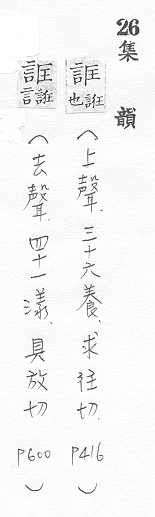 26集韻
誑誑也（上聲、三十六養、求往切、P416）
誑誑言（去聲、四十一漾、具放切 P600）